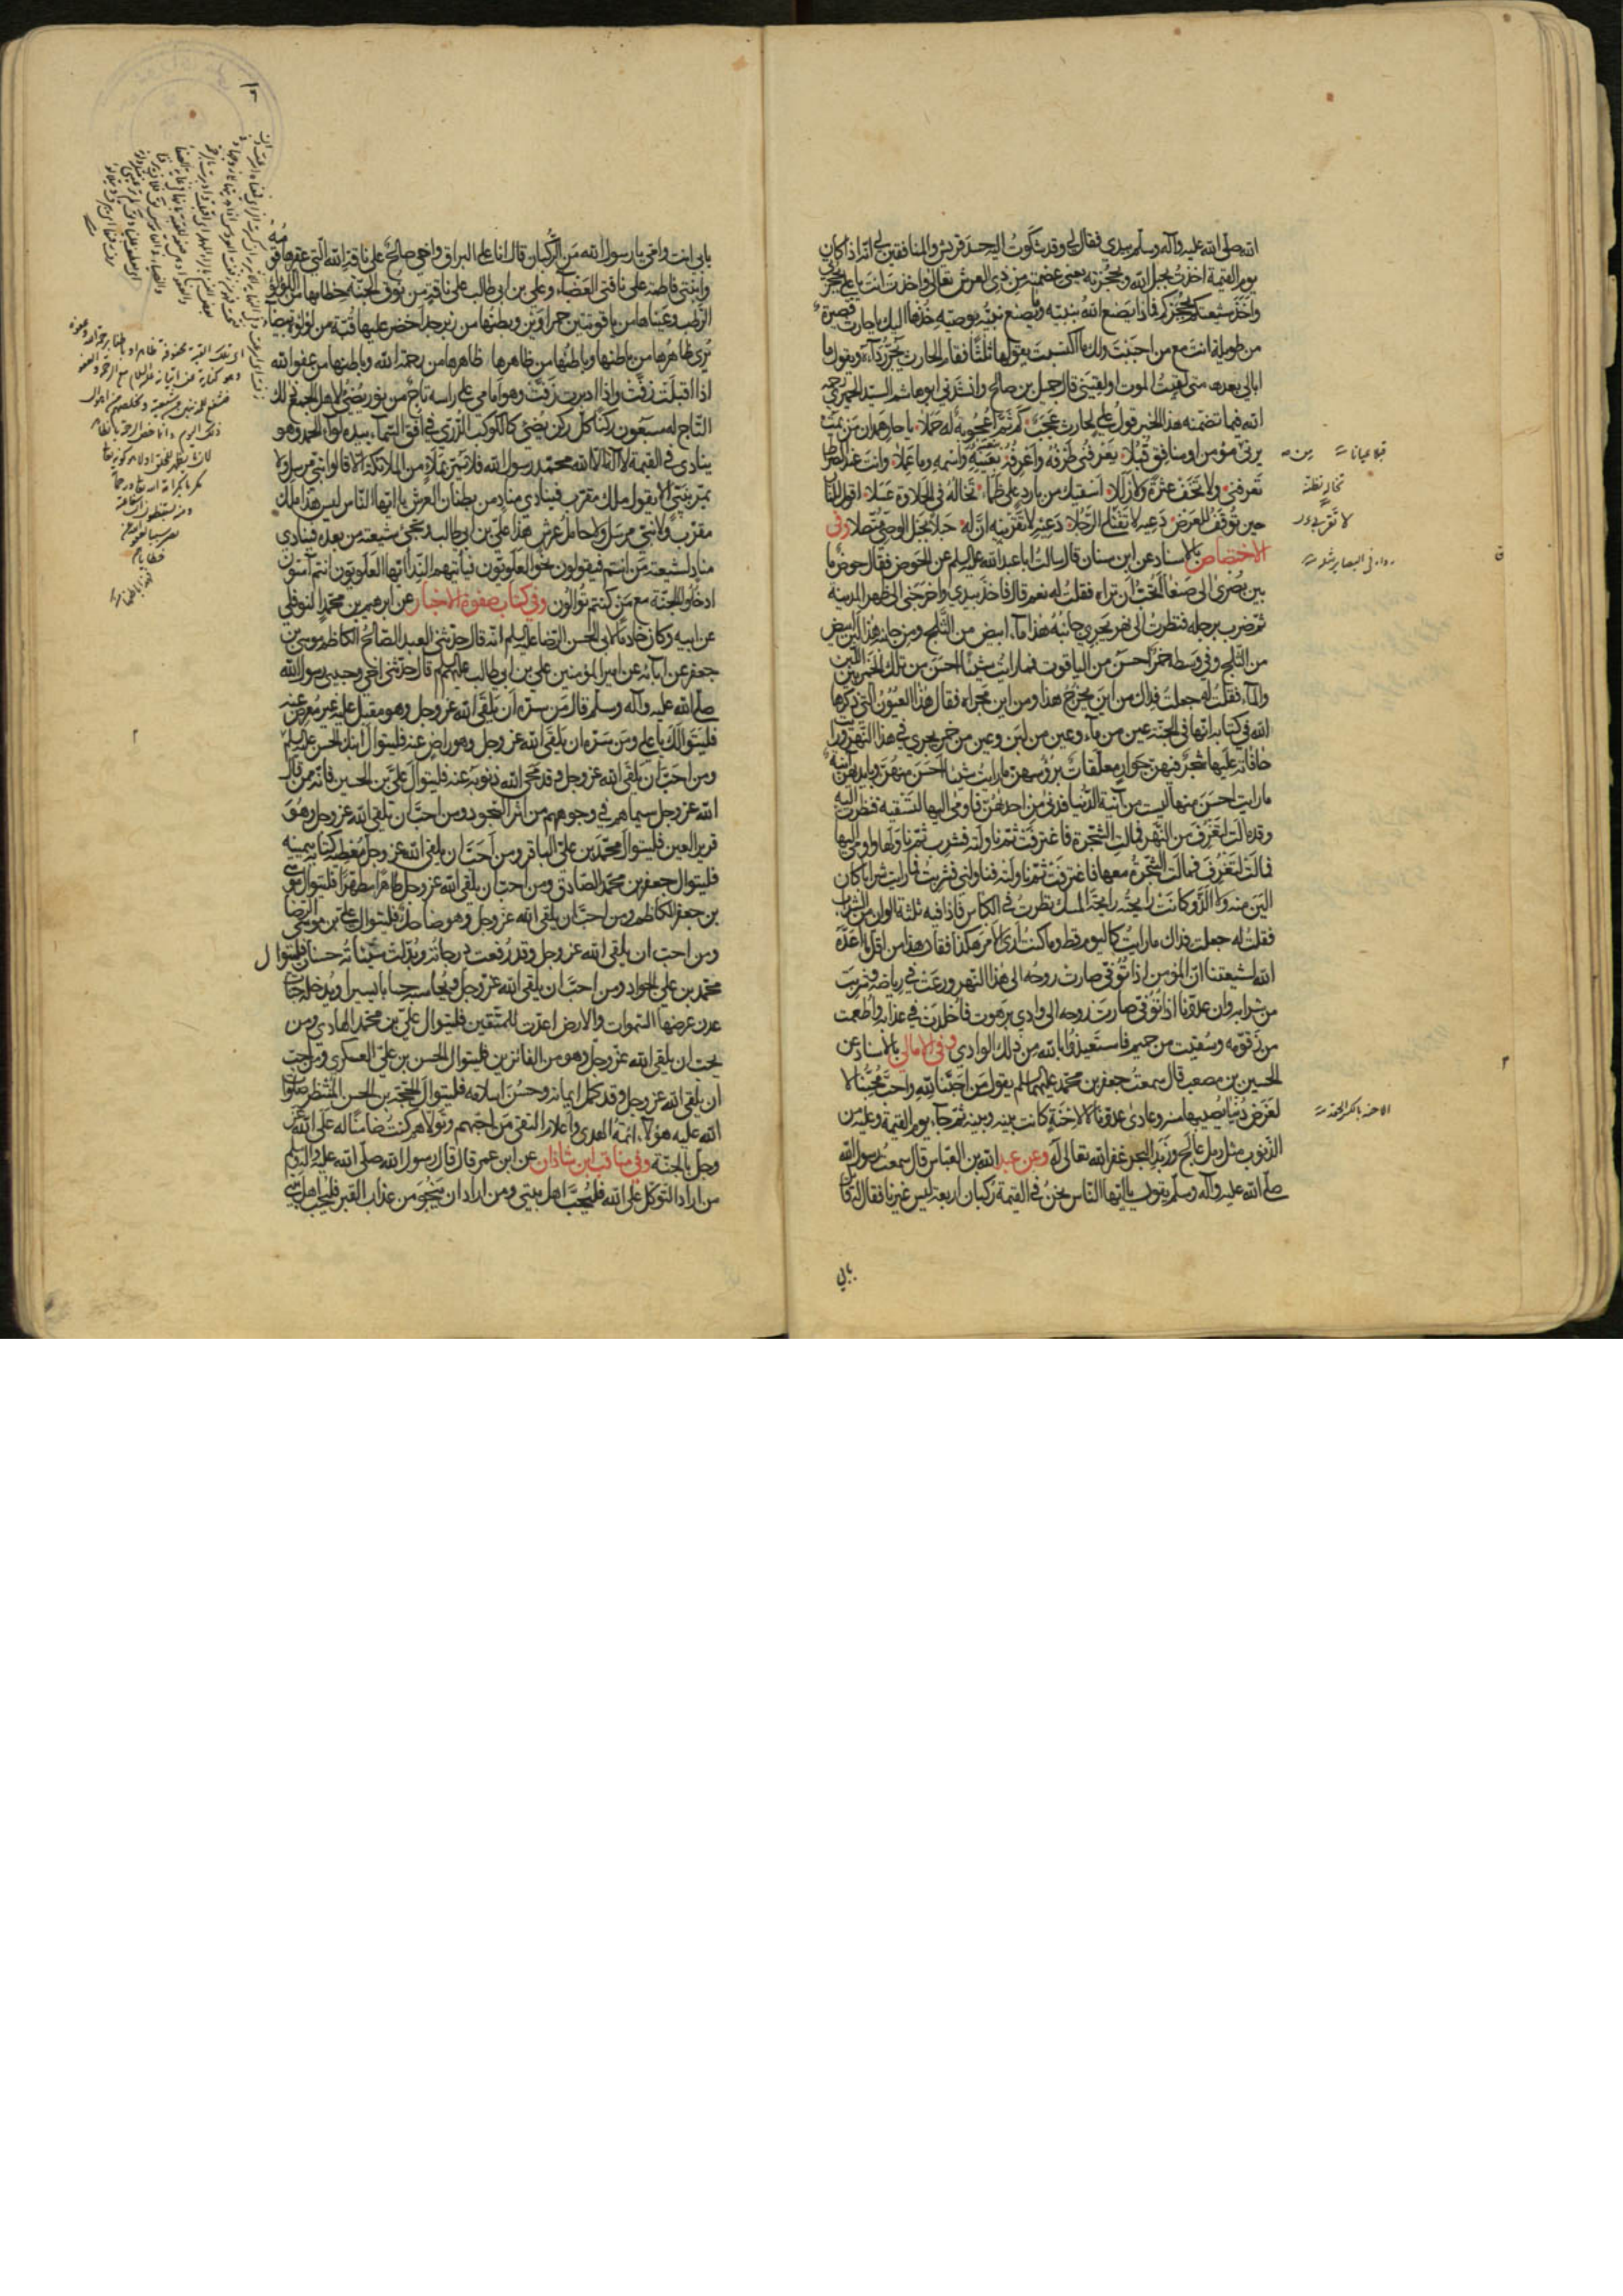 الله صلى الله عليه وآله وسلم بيدي فقال لي وقد شكوت اليه حسد قريش والمنافقين لي انه اذا كان
يوم القيمة اخذت بحبل الله وبحجزته يعني عصمته من ذي العرش تعالى واخذت انت يا علي بحجزتي
واخذ شيعتكم بحجزكم فماذا يصنع الله بنبيه وما يصنع نبيه بوصيه خذها اليك يا حارث قصيرة
من طويلة انت مع من احببت ولك ما اكتسبت يقولها ثلثا فقام الحارث يجر رداءه ويقول ما
ابالي بعدها متى لقيت الموت او لقيني قال جميل بن صالح وانشدني ابو هاشم السيد الحميري رحمه
الله فيما تضمنه هذا الخبر قول علي لحارث عجب كم ثم اعجوبة له حملا يا حار همدان من يمت
يرني من مؤمن او منافق قبلا يعرفني طرفه واعرفه بعينه واسمه وما عملا وانت عند الصراط
تعرفني ولا تخف عثرة ولا زللا اسقيك من بارد على ظماء تخاله في الحلاوة عسلا اقول للنار
حين توقف للعرض دعيه لا تقتلي الرجلا دعيه لا تقربيه ان له حبلا بحبل الوصي متصلا وفي
الاختصاص بالاسناد عن ابن سنان قال سالت ابا عبد الله عليه السلم عن الحوض فقال حوض ما
بين بصرى الى صنعا اتحب ان تراه فقلت له نعم قال فاخذ بيدي واخرجني الى ظهر المدينة
ثم ضرب برجله فنظرت الى نهر يجري جانبه هذا ماء ابيض من الثلج ومن جانبه هذا لبن ابيض
من الثلج وفي وسطه خمر احسن من الياقوت فما رايت شيئا احسن من تلك الخمر بين اللبن
والماء فقلت له جعلت فداك من اين يخرج هذا ومن اين مجراه فقال هذا العيون التي ذكرها
الله في كتابه انها في الجنة عين من ماء وعين من لبن وعين من خمر يجري في هذا النهر ورايت
حافاته عليها شجر فيهن جوار معلقات برؤسهن ما رايت شيئا احسن منهن وبايديهن آنية
ما رايت احسن منها ليست من آنية الدنيا فدنى من احديهن فاومى اليها لتسقيه فنظرت اليه
وقد مالت لتغرف من النهر فمالت الشجرة فاغترفت ثم ناولته فشرب ثم ناولها واومى اليها
فمالت لتغرف فمالت الشجرة معها فاغترفت ثم ناولته فناولني فشربت فما رايت شرابا كان
الين منه ولا الذ وكانت رايحته رايحة المسك ونظرت في الكاس فاذا فيه ثلثة الوان من الشراب
فقلت له جعلت فداك ما رايت كاليوم قط وما كنت ارى الامر هكذا فقال هذا من اقل ما اعده
الله لشيعتنا ان المؤمن اذا توفي صارت روحه الى هذا النهر ورعت في رياضه وشربت
من شرابه وان عدونا اذا توفي صارت روحه الى وادي برهوت فاخلدت في عذابه واطعمت
من زقومه وسقيت من حميمه فاستعيذوا بالله من ذلك الوادي وفي الامالي بالاسناد عن
الحسين بن مصعب قال سمعت جعفر بن محمد عليهما السلم يقول من احبنا لله واحب محبنا لا
لغرض دنيا يصيبها منه وعادى عدونا لا لاحنة كانت بينه وبينه ثم جاء يوم القيمة وعليه من
الذنوب مثل رمل عالج وزبد البحر غفر الله تعالى له وعن عبد الله بن العباس قال سمعت رسول الله
صلى الله عليه وآله وسلم يقول يا ايها الناس نحن في القيمة ركبان اربعة ليس غيرنا فقال له قائل
بابي
قبلا عيانا
تخاله تظنه
لا تقربيه
رواه في البصاير
الاحنة بالكسر الحقد
بابي انت وامي يا رسول الله من الركبان قال انا على البراق واخي صالح على ناقة الله التي عقرها قومه
وابنتي فاطمة على ناقتي العضباء وعلي بن ابي طالب على ناقة من نوق الجنة خطامها من اللؤلؤ
الرطب وعيناها من ياقوتتين حمراوين وبطنها من زبرجد اخضر عليها قبة من لؤلؤة بيضاء
يرى ظاهرها من باطنها وباطنها من ظاهرها ظاهرها من رحمة الله وباطنها من عفو الله
اذا اقبلت زفت واذا ادبرت زفت وهو امامي على راسه تاج من نور يضئ لاهل الجمع ذلك
التاج له سبعون ركنا كل ركن يضئ كالكوكب الدري في افق السماء بيده لواء الحمد وهو
ينادي في القيمة لا اله الا الله محمد رسول الله فلا يمر بملاء من الملائكة الا قالوا نبي مرسل ولا
يمر بنبي الا يقول ملك مقرب فينادي مناد من بطنان العرش يا ايها الناس ليس هذا ملك
مقرب ولا نبي مرسل ولا حامل عرش هذا علي بن ابي طالب ويجئ شيعته من بعده فينادي
مناد لشيعته من انتم فيقولون نحن العلويون فيأتيهم النداء ايها العلويون انتم آمنون
ادخلوا الجنة مع من كنتم توالون وفي كتاب صفوة الاخبار عن ابرهيم بن محمد النوفلي
عن ابيه وكان خادما لابي الحسن الرضا عليه السلم انه قال حدثني العبد الصالح الكاظم موسى بن
جعفر عن آبائه عن امير المؤمنين علي بن ابي طالب عليهم السلم قال حدثني اخي وحبيبي رسول الله
صلى الله عليه وآله وسلم قال من سره ان يلقى الله عز وجل وهو مقبل عليه غير معرض عنه
فليتوالك يا علي ومن سره ان يلقى الله عز وجل وهو راض عنه فليتوال ابنك الحسن عليه السلم
ومن احب ان يلقى الله عز وجل وقد محى الله ذنوبه عنه فليتوال علي بن الحسين فانه ممن قال
الله عز وجل سيماهم في وجوههم من اثر السجود ومن احب ان يلقى الله عز وجل وهو
قرير العين فليتوال محمد بن علي الباقر ومن احب ان يلقى الله عز وجل فيعطيه كتابه بيمينه
فليتوال جعفر بن محمد الصادق ومن احب ان يلقى الله عز وجل طاهرا مطهرا فليتوال موسى
بن جعفر الكاظم ومن احب ان يلقى الله عز وجل وهو ضاحك فليتوال علي بن موسى الرضا
ومن احب ان يلقى الله عز وجل وقد رفعت درجاته وبدلت سيئاته حسنات فليتوال
محمد بن علي الجواد ومن احب ان يلقى الله عز وجل فيحاسبه حسابا يسيرا ويدخله جنات
عدن عرضها السموات والارض اعدت للمتقين فليتوال علي بن محمد الهادي ومن
يحب ان يلقى الله عز وجل وهو من الفائزين فليتوال الحسن بن علي العسكري ومن احب
ان يلقى الله عز وجل وقد كمل ايمانه وحسن اسلامه فليتوال الحجة بن الحسن المنتظر صلوات
الله عليه هؤلاء ائمة الهدى واعلام التقى من احبهم وتولاهم كنت ضامنا له على الله عز
وجل بالجنة وفي مناقب ابن شاذان عن ابن عمر قال قال رسول الله صلى الله عليه وآله وسلم
من اراد التوكل على الله فليحب اهل بيتي ومن اراد ان ينجو من عذاب القبر فليحب اهل بيتي